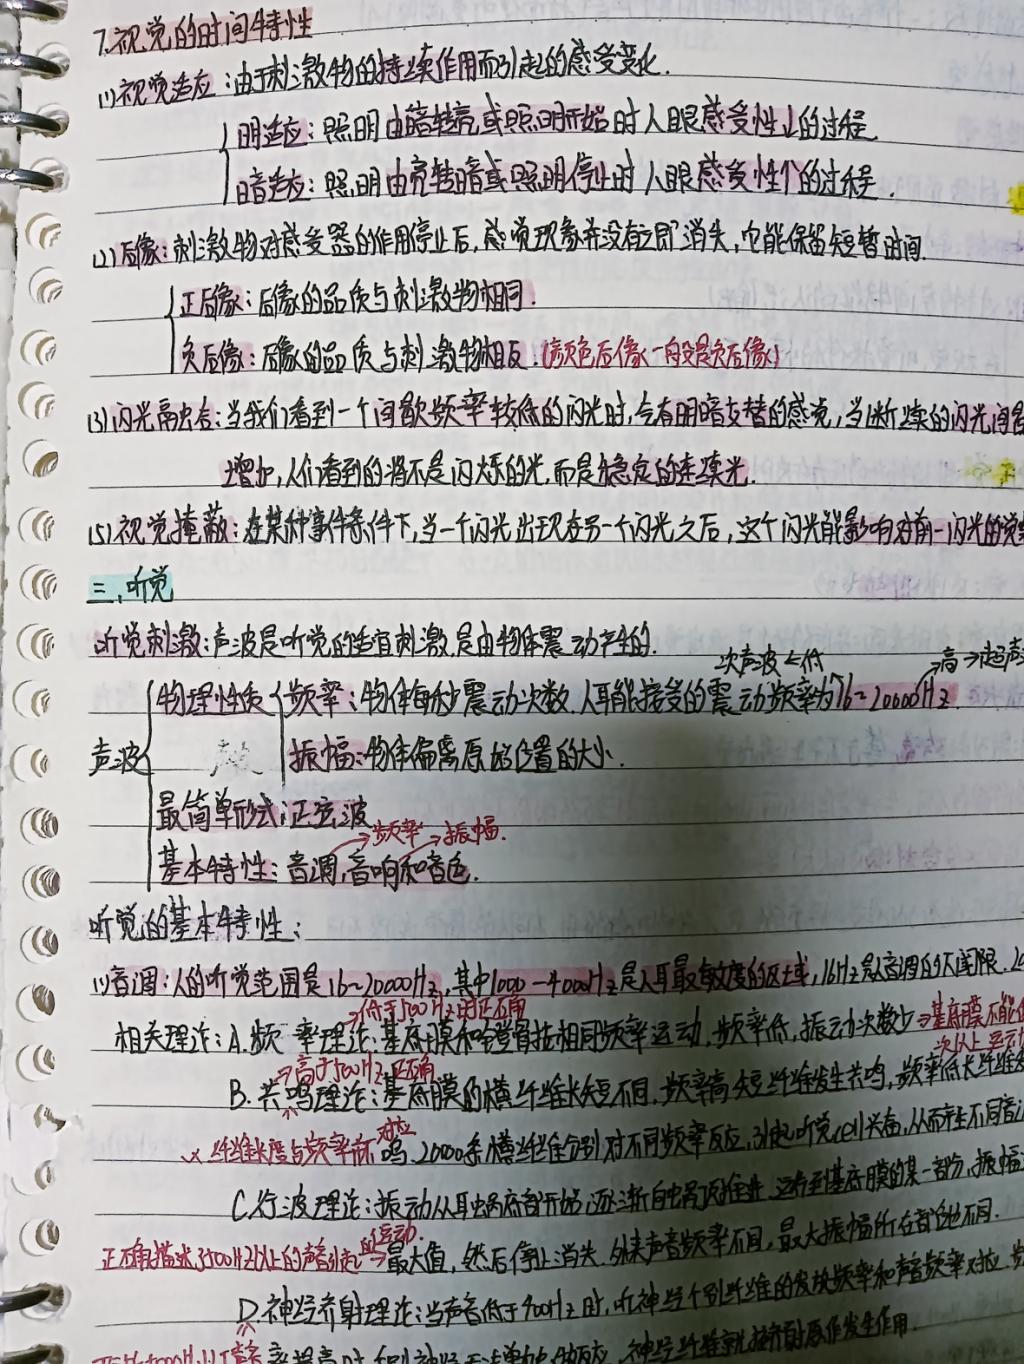 7.视觉的时间特性
(1)视觉适应：由于刺激物的持续作用而引起的感受变化.
明适应：照明由暗转亮或照明开始时人眼感受性↓的过程.
暗适应：照明由亮转暗或照明停止时人眼感受性↑的过程.
(2)后像：刺激物对感受器的作用停止后，感觉现象并没有立即消失，它能保留短暂时间.
正后像：后像的品质与刺激物相同.
负后像：后像的品质与刺激物相反.(颜色后像一般是负后像)
(3)闪光融合：当我们看到一个间歇频率较低的闪光时，会有明暗交替的感觉，当断续的闪光间
增加，人们看到的将不是闪烁的光，而是稳定的连续光.
(5)视觉掩蔽：在某种事件条件下，当一个闪光出现在另一个闪光之后，这个闪光能影响对前一闪光的觉
三、听觉
听觉刺激：声波是听觉的适宜刺激，是由物体震动产生的.
次声波←低 高→超声
物理性质 频率：物体每秒震动次数.人耳能接受的震动频率为16~20000Hz.
声波 振幅：物体偏离原始位置的大小.
最简单形式：正弦波
→频率 →振幅.
基本特性：音调，音响和音色.
听觉的基本特性：
(1)音调：人的听觉范围是16~20000Hz，其中1000-4000Hz是人耳最敏感的区域，16Hz是音调的下阈限.
→低于500Hz时正确
相关理论：A.频率理论：基底膜和镫骨按相同频率运动.频率低，振动次数少→基底膜不能
次以上运动
→高于500Hz正确
B.共鸣理论：基底膜的横纤维长短不同，频率高短纤维发生共鸣，频率低长纤维
对应
×纤维长度与频率 鸣.20000条横纤维分别对不同频率反应，引起听觉cell兴奋，从而产生不同音
C.行波理论：振动从耳蜗底部开始，逐渐向蜗顶推进.运动到基底膜的某一部分，振幅
正确描述500Hz以上的声音引起的运动.→最大值，然后停止消失.外来声音频率不同，最大振幅所在部位不同.
D.神经齐射理论：当声音低于400Hz时，听神经个别纤维的发放频率和声音频率对应.
神经纤维就按齐射原则发生作用.